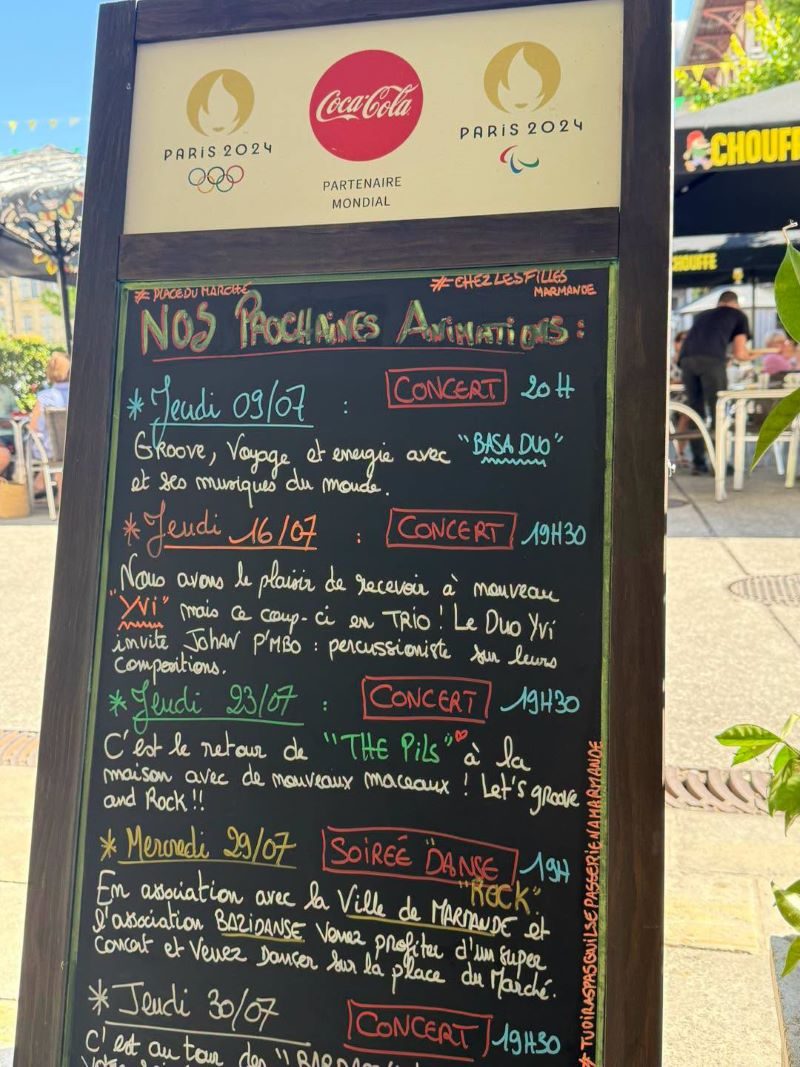 PARIS 2024
Coca-Cola
PARTENAIRE
MONDIAL
PARIS 2024
CHOUFFE
# PLACE DU MARCHÉ
# CHEZ LES FILLES
MARMANDE
NOS PROCHAINES ANIMATIONS :
* Jeudi 09/07 : CONCERT 20H
Groove, Voyage et energie avec "BASA DUO"
et ses musiques du monde.
* Jeudi 16/07 : CONCERT 19H30
Nous avons le plaisir de recevoir à nouveau
"YVI" mais ce coup-ci en TRIO ! Le Duo Yvi
invite JOHAN P'MBO : percussioniste sur leurs
compositions.
* Jeudi 23/07 : CONCERT 19H30
C'est le retour de "THE PiLS" à la
maison avec de nouveaux morceaux ! Let's groove
and Rock !!
* Mercredi 29/07 SOIREÉ DANSE 19H
"ROCK"
En association avec la Ville de MARMANDE et
l'association BAZIDANSE Venez profiter d'un super
concert et Venez Danser sur la place du Marché.
* Jeudi 30/07 CONCERT 19H30
C'est au tour des
# TUDIRASPASQUILSEPASSERIENAMARMANDE